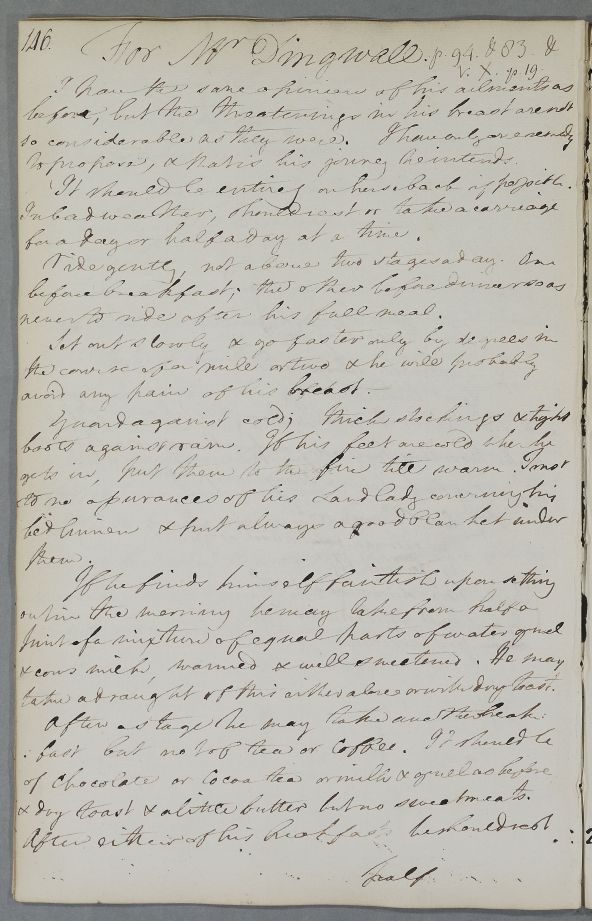 146.
For Mr Dingwall. p. 94. & 83. &
V. X. p. 19.
I have the same opinion of his ailments as
before, but the threatenings in his breast are not
so considerable as they were. I have only one remedy
to propose, & that is his jouney he intends.
It should be entirely on horseback if possible.
In bad weather, should rest or take a carriage
for a day or half a day at a time.
Ride gently, not above two stages a day. One
before breakfast; the other before dinner so as
never to ride after his full meal.
Set out slowly & go faster only by degrees in
the course of a mile or two & he will probably
avoid any pain of his breast. –
Guard against cold; thick stockings & tight
boots against rain. If his feet are cold when he
gets in, put them to the fire till warm. Trust
to no assurances of his Landlady concerning his
bed linnen & put always a good blanket under
them.
If he finds himself faintish upon setting
out in the morning he may take from half a
pint of a mixture of equal parts of water gruel
& cows milk, warmed & well sweetened. He may
take a draught of this either alone or with dry toast.
After a stage he may take another break:
:fast but not of tea or Coffee. It should be
of Chocolate or Cocoa tea or milk & gruel as before
& dry toast & a little butter but no sweetmeats.
After either of his breakfasts he should rest
half